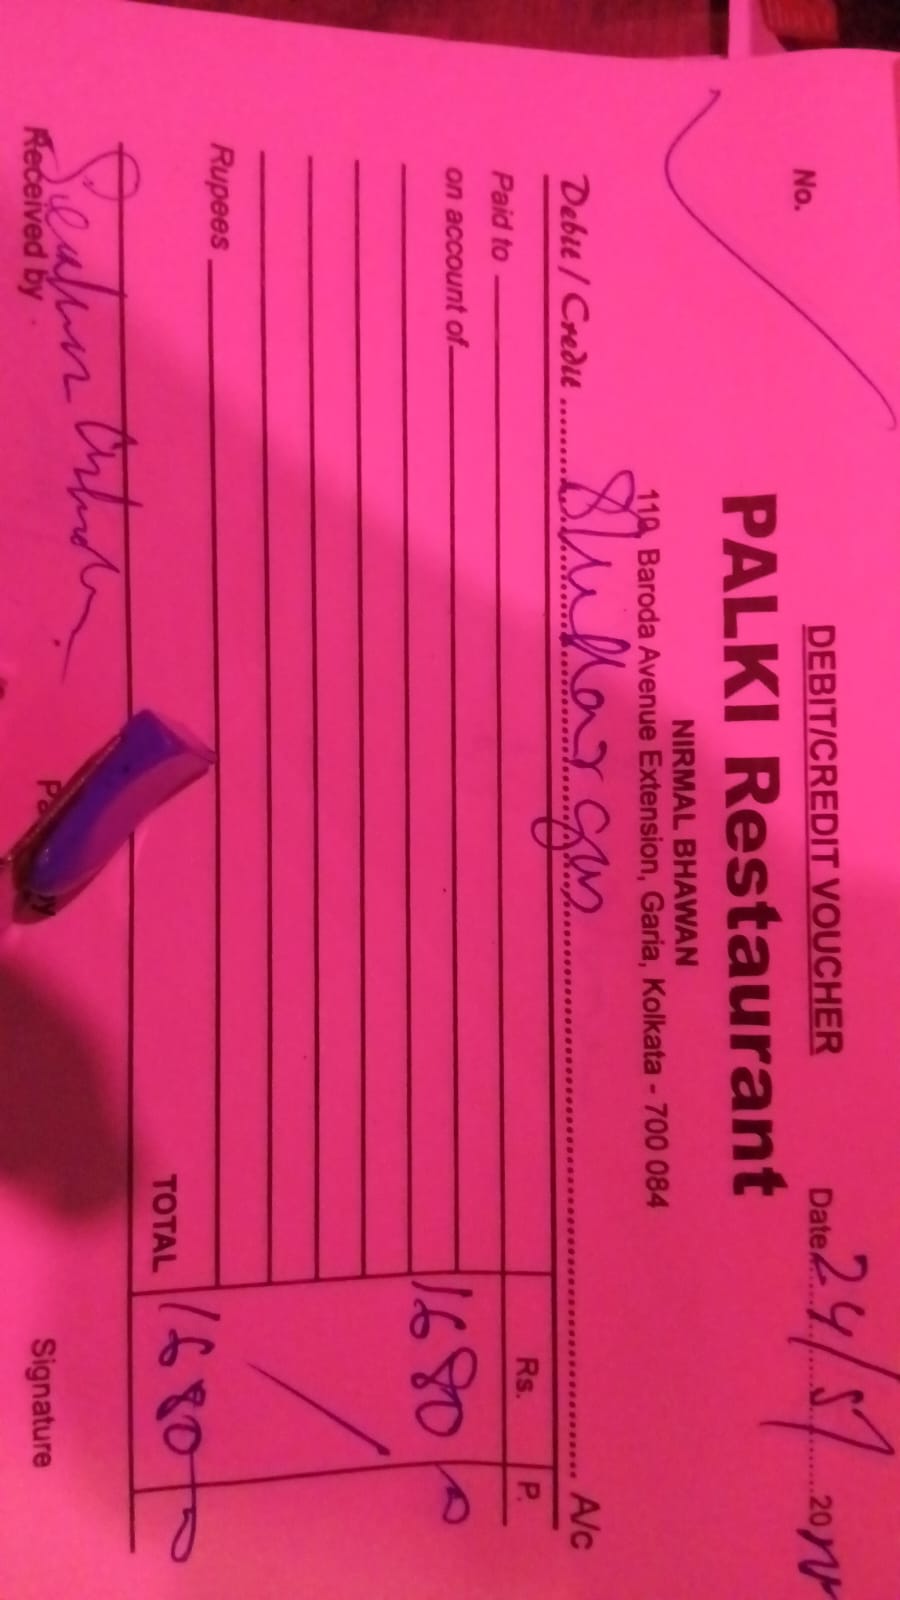 DEBIT/CREDIT VOUCHER
No.
Date 24/5/2022
PALKI Restaurant
NIRMAL BHAWAN
110, Baroda Avenue Extension, Garia, Kolkata - 700 084
Debit / Credit A/c
Rs. P.
Paid to
on account of 1680
Rupees
TOTAL 1680
Received by
Signature